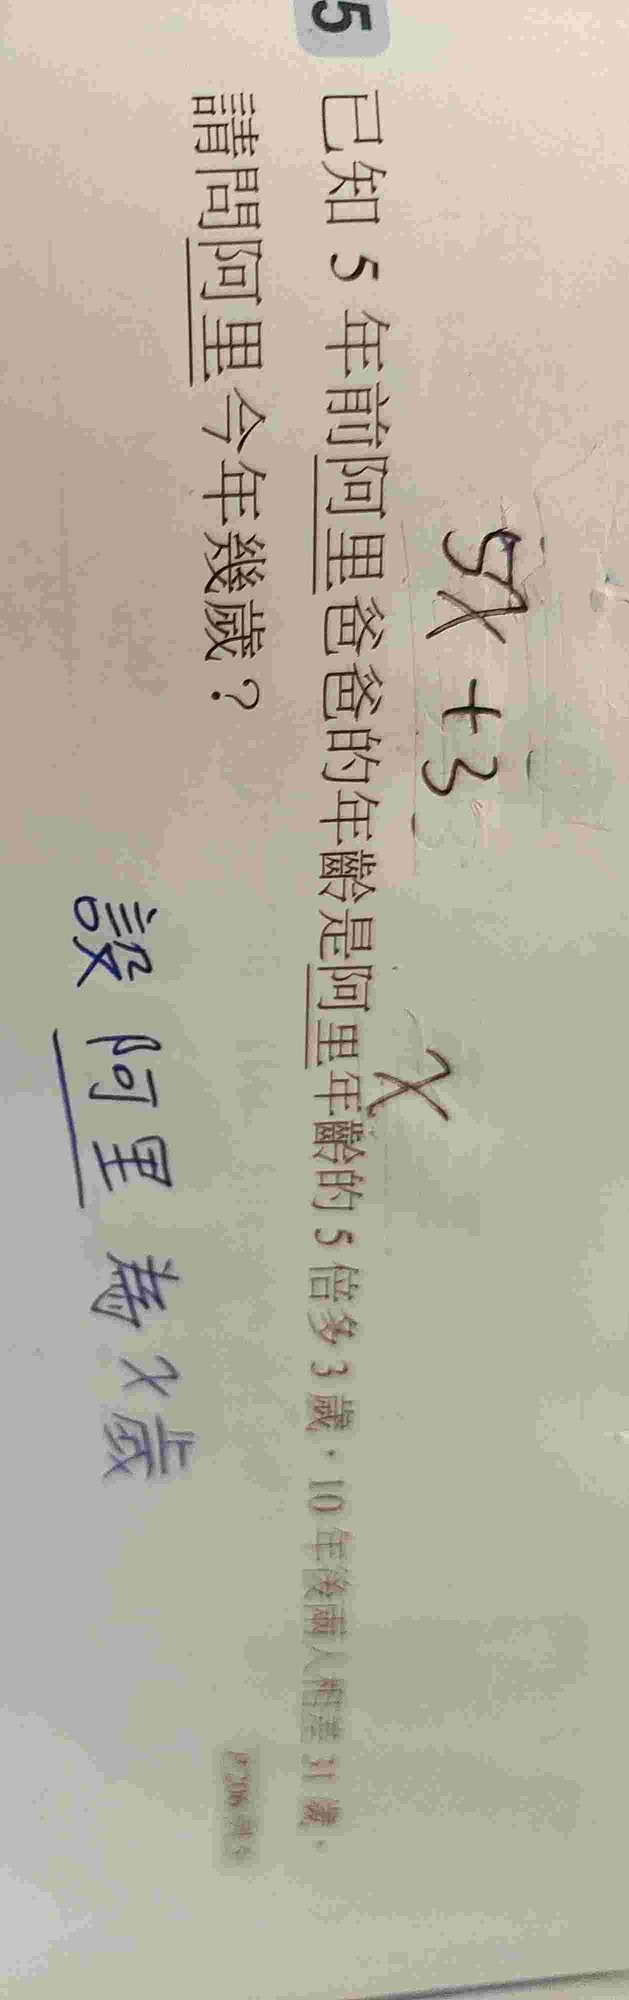 5x+3
x
5 已知 5 年前阿里爸爸的年齡是阿里年齡的 5 倍多 3 歲，10 年後兩人相差 31 歲，
請問阿里今年幾歲？
設阿里為x歲